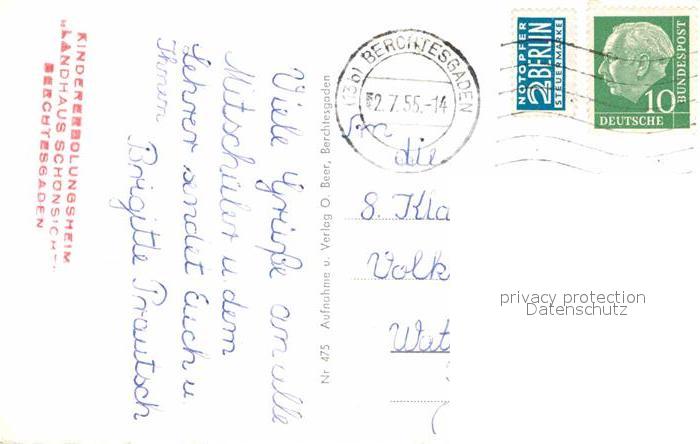 KINDERERHOLUNGSHEIM
"LANDHAUS SCHÖNSICHT"
BERCHTESGADEN
Viele Grüße an alle
Mitschüler u. dem
Lehrer sendet Euch u.
Ihnen
Brigitte Trautsch
Nr 475 Aufnahme u. Verlag O. Beer, Berchtesgaden
(13b) BERCHTESGADEN
2.7.55.-14
NOTOPFER
2 BERLIN
STEUERMARKE
10
DEUTSCHE
BUNDESPOST
An
die
8. Kla
Volk
Wat
privacy protection
Datenschutz